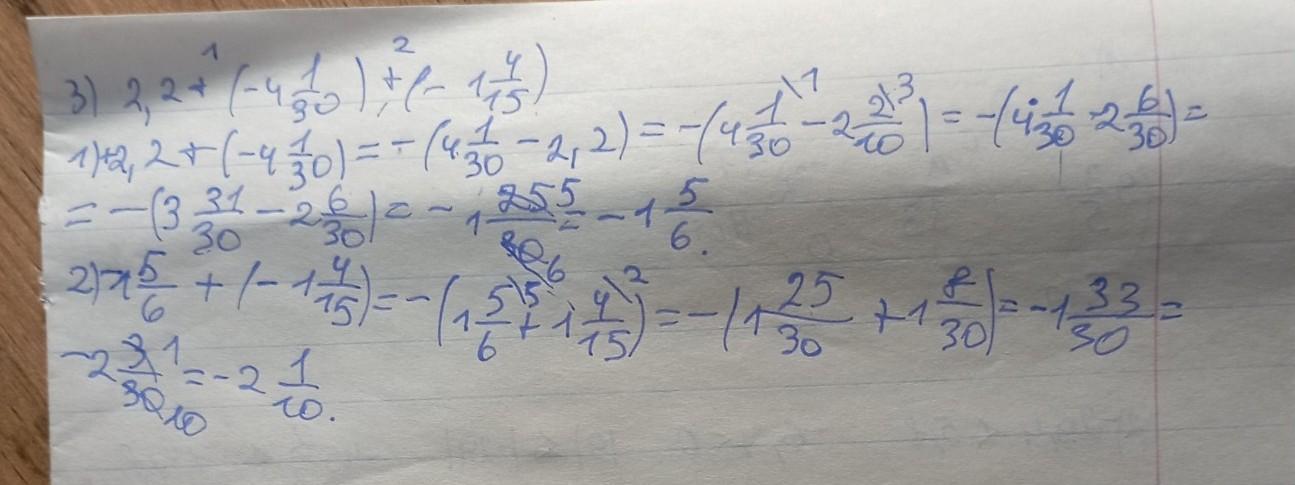 3) 2,2 + (-4 1/30) + (-1 4/15)
1) +2,2 + (-4 1/30) = -(4 1/30 - 2,2) = -(4 1/30 \1 - 2 2/10 \3) = -(4 1/30 - 2 6/30) =
= -(3 31/30 - 2 6/30) = -1 25/30 = -1 5/6.
2) -1 5/6 + (-1 4/15) = -(1 5/6 \5 + 1 4/15 \2) = -(1 25/30 + 1 8/30) = -1 33/30 =
-2 3/30 = -2 1/10.